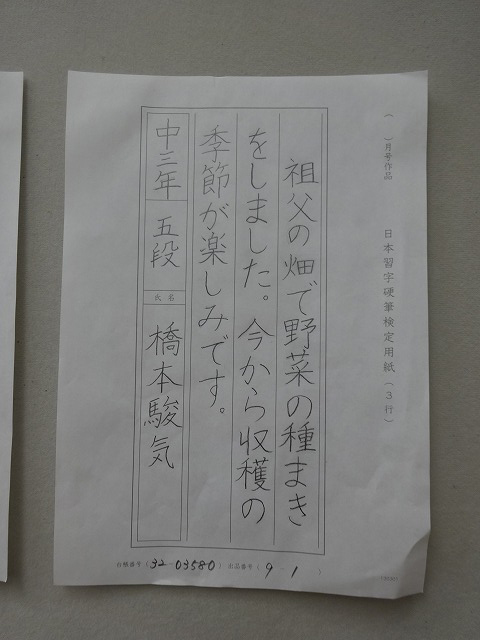 （　）月号作品　日本習字硬筆検定用紙（３行）
祖父の畑で野菜の種まき
をしました。今から収穫の
季節が楽しみです。
中三年 五段 氏名 橋本駿気
台帳番号（32-03580）出品番号（9-1）